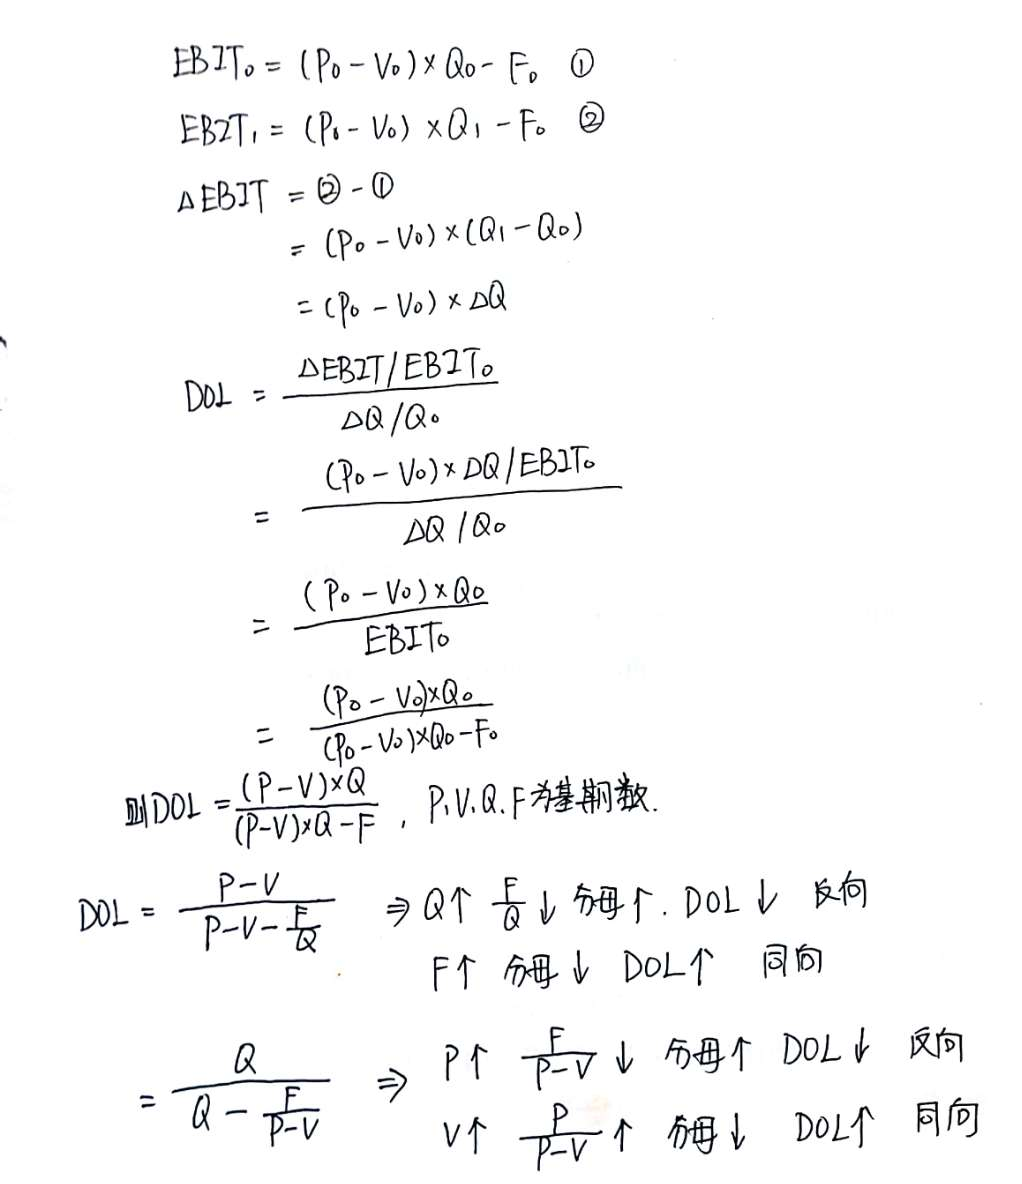 EBIT₀ = (P₀ - V₀) × Q₀ - F₀ ①
EBIT₁ = (P₀ - V₀) × Q₁ - F₀ ②
ΔEBIT = ② - ①
= (P₀ - V₀) × (Q₁ - Q₀)
= (P₀ - V₀) × ΔQ
DOL = ΔEBIT/EBIT₀ / ΔQ/Q₀
= (P₀ - V₀) × ΔQ/EBIT₀ / ΔQ/Q₀
= (P₀ - V₀) × Q₀ / EBIT₀
= (P₀ - V₀) × Q₀ / (P₀ - V₀) × Q₀ - F₀
则DOL = (P-V)×Q / (P-V)×Q-F , P、V、Q、F为基期数.
DOL = P-V / P-V-F/Q ⇒ Q↑ F/Q ↓ 分母↑. DOL↓ 反向
F↑ 分母↓ DOL↑ 同向
= Q / Q - F/P-V ⇒ P↑ F/P-V ↓ 分母↑ DOL↓ 反向
V↑ P/P-V ↑ 分母↓ DOL↑ 同向